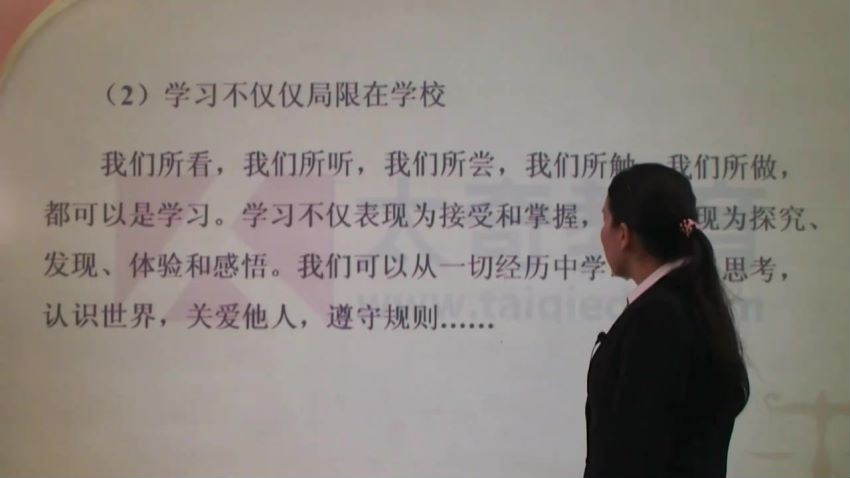 （2）学习不仅仅局限在学校
我们所看，我们所听，我们所尝，我们所触 我们所做，
都可以是学习。学习不仅表现为接受和掌握， 现为探究、
发现、体验和感悟。我们可以从一切经历中学 思考，
认识世界，关爱他人，遵守规则……
太奇教育
www.taiqiedu.com